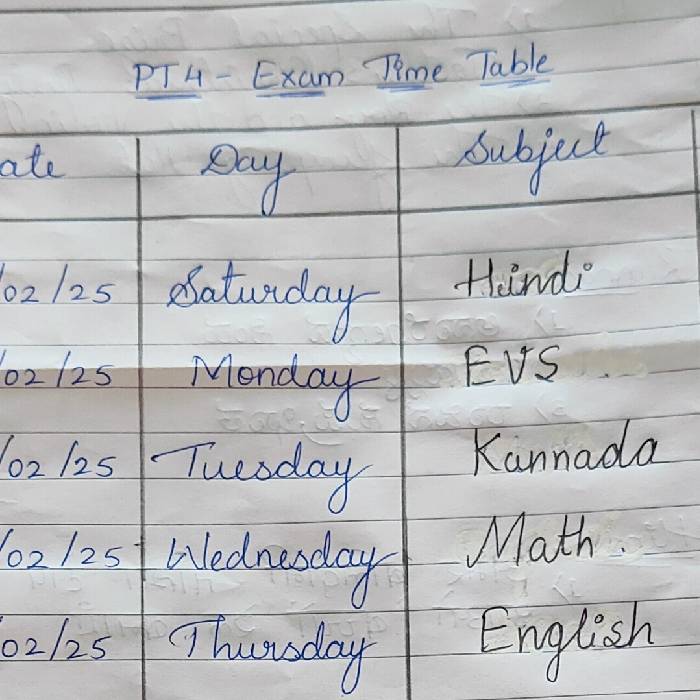 PT4 - Exam Time Table
ate Day Subject
/02/25 Saturday Hindi
/02/25 Monday EVS
/02/25 Tuesday Kannada
/02/25 Wednesday Math.
02/25 Thursday English